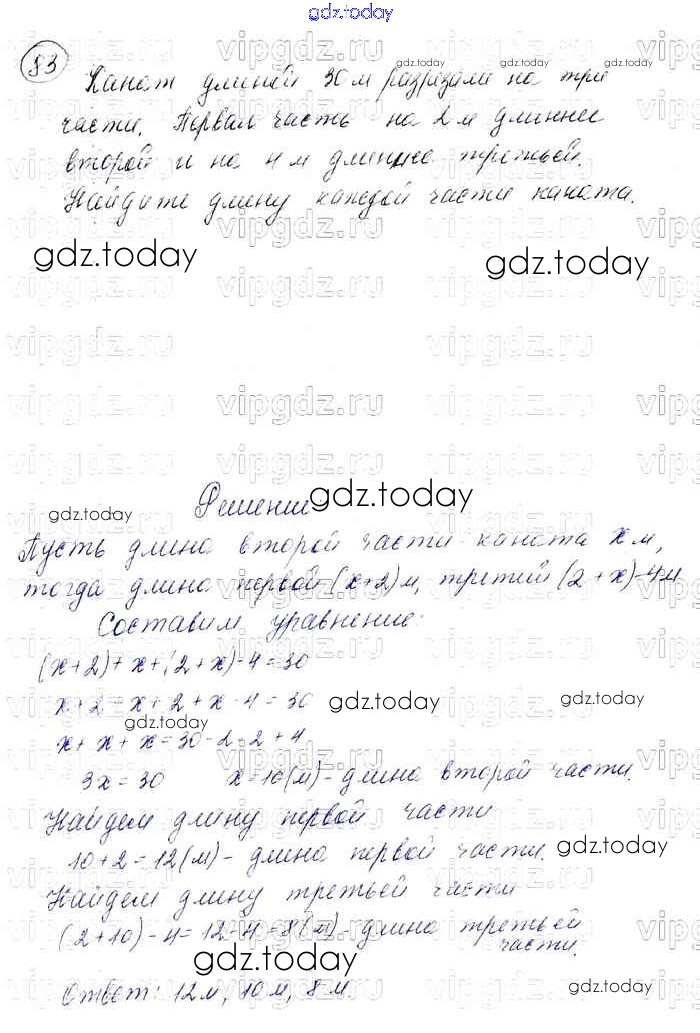 gdz.today
83
Канат длиной 30 м разрезали на три
части. Первая часть на 2 м длиннее
второй и на 4 м длиннее третьей.
Найдите длину каждой части каната.
gdz.today
gdz.today
Решение
gdz.today
gdz.today
Пусть длина второй части каната x м,
тогда длина первой (x+2) м, третий (2+x)-4 м
Составим уравнение:
(x+2)+x+(2+x)-4=30
x+2+x+2+x-4=30
gdz.today
gdz.today
gdz.today
x+x+x=30-2-2+4
3x=30 x=10(м)-длина второй части.
Найдем длину первой части
10+2=12(м)-длина первой части.
gdz.today
Найдем длину третьей части
(2+10)-4=12-4=8(м)-длина третьей
части.
gdz.today
Ответ: 12м, 10м, 8м.
gdz.today